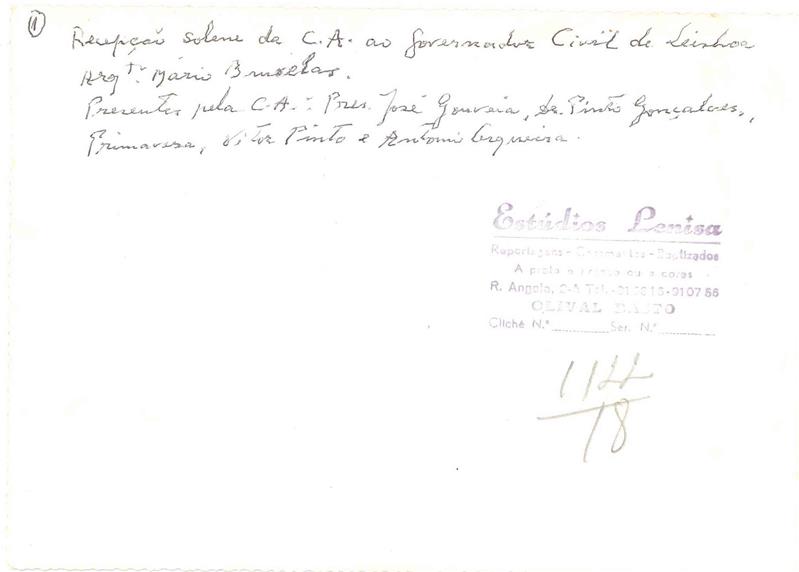 1
Recepção solene da C.A. ao Governador Civil de Lisboa
Arqtº. Mário Bruxelas.
Presentes pela C.A.: Pres. José Gouveia, Dr. Pinto Gonçalves,
Primavera, Vitor Pinto e António Cerqueira.
Estúdios Lenisa
Reportagens - Casamentos - Baptizados
A preto e branco ou a cores
R. Angola, 2-A Tel. 
OLIVAL BASTO
Cliché N.º Ser. N.º
1122
18